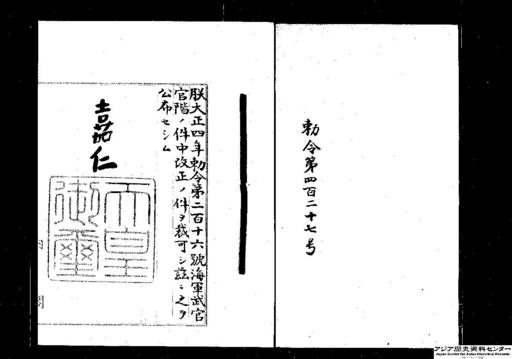 勅令第四百二十七号
朕大正四年勅令第二百十六號海軍武官
官階ノ件中改正ノ件ヲ裁可シ茲ニ之ヲ
公布セシム
嘉仁
天皇
御璽
内
閣
アジア歴史資料センター
Japan Center for Asian Historical Records